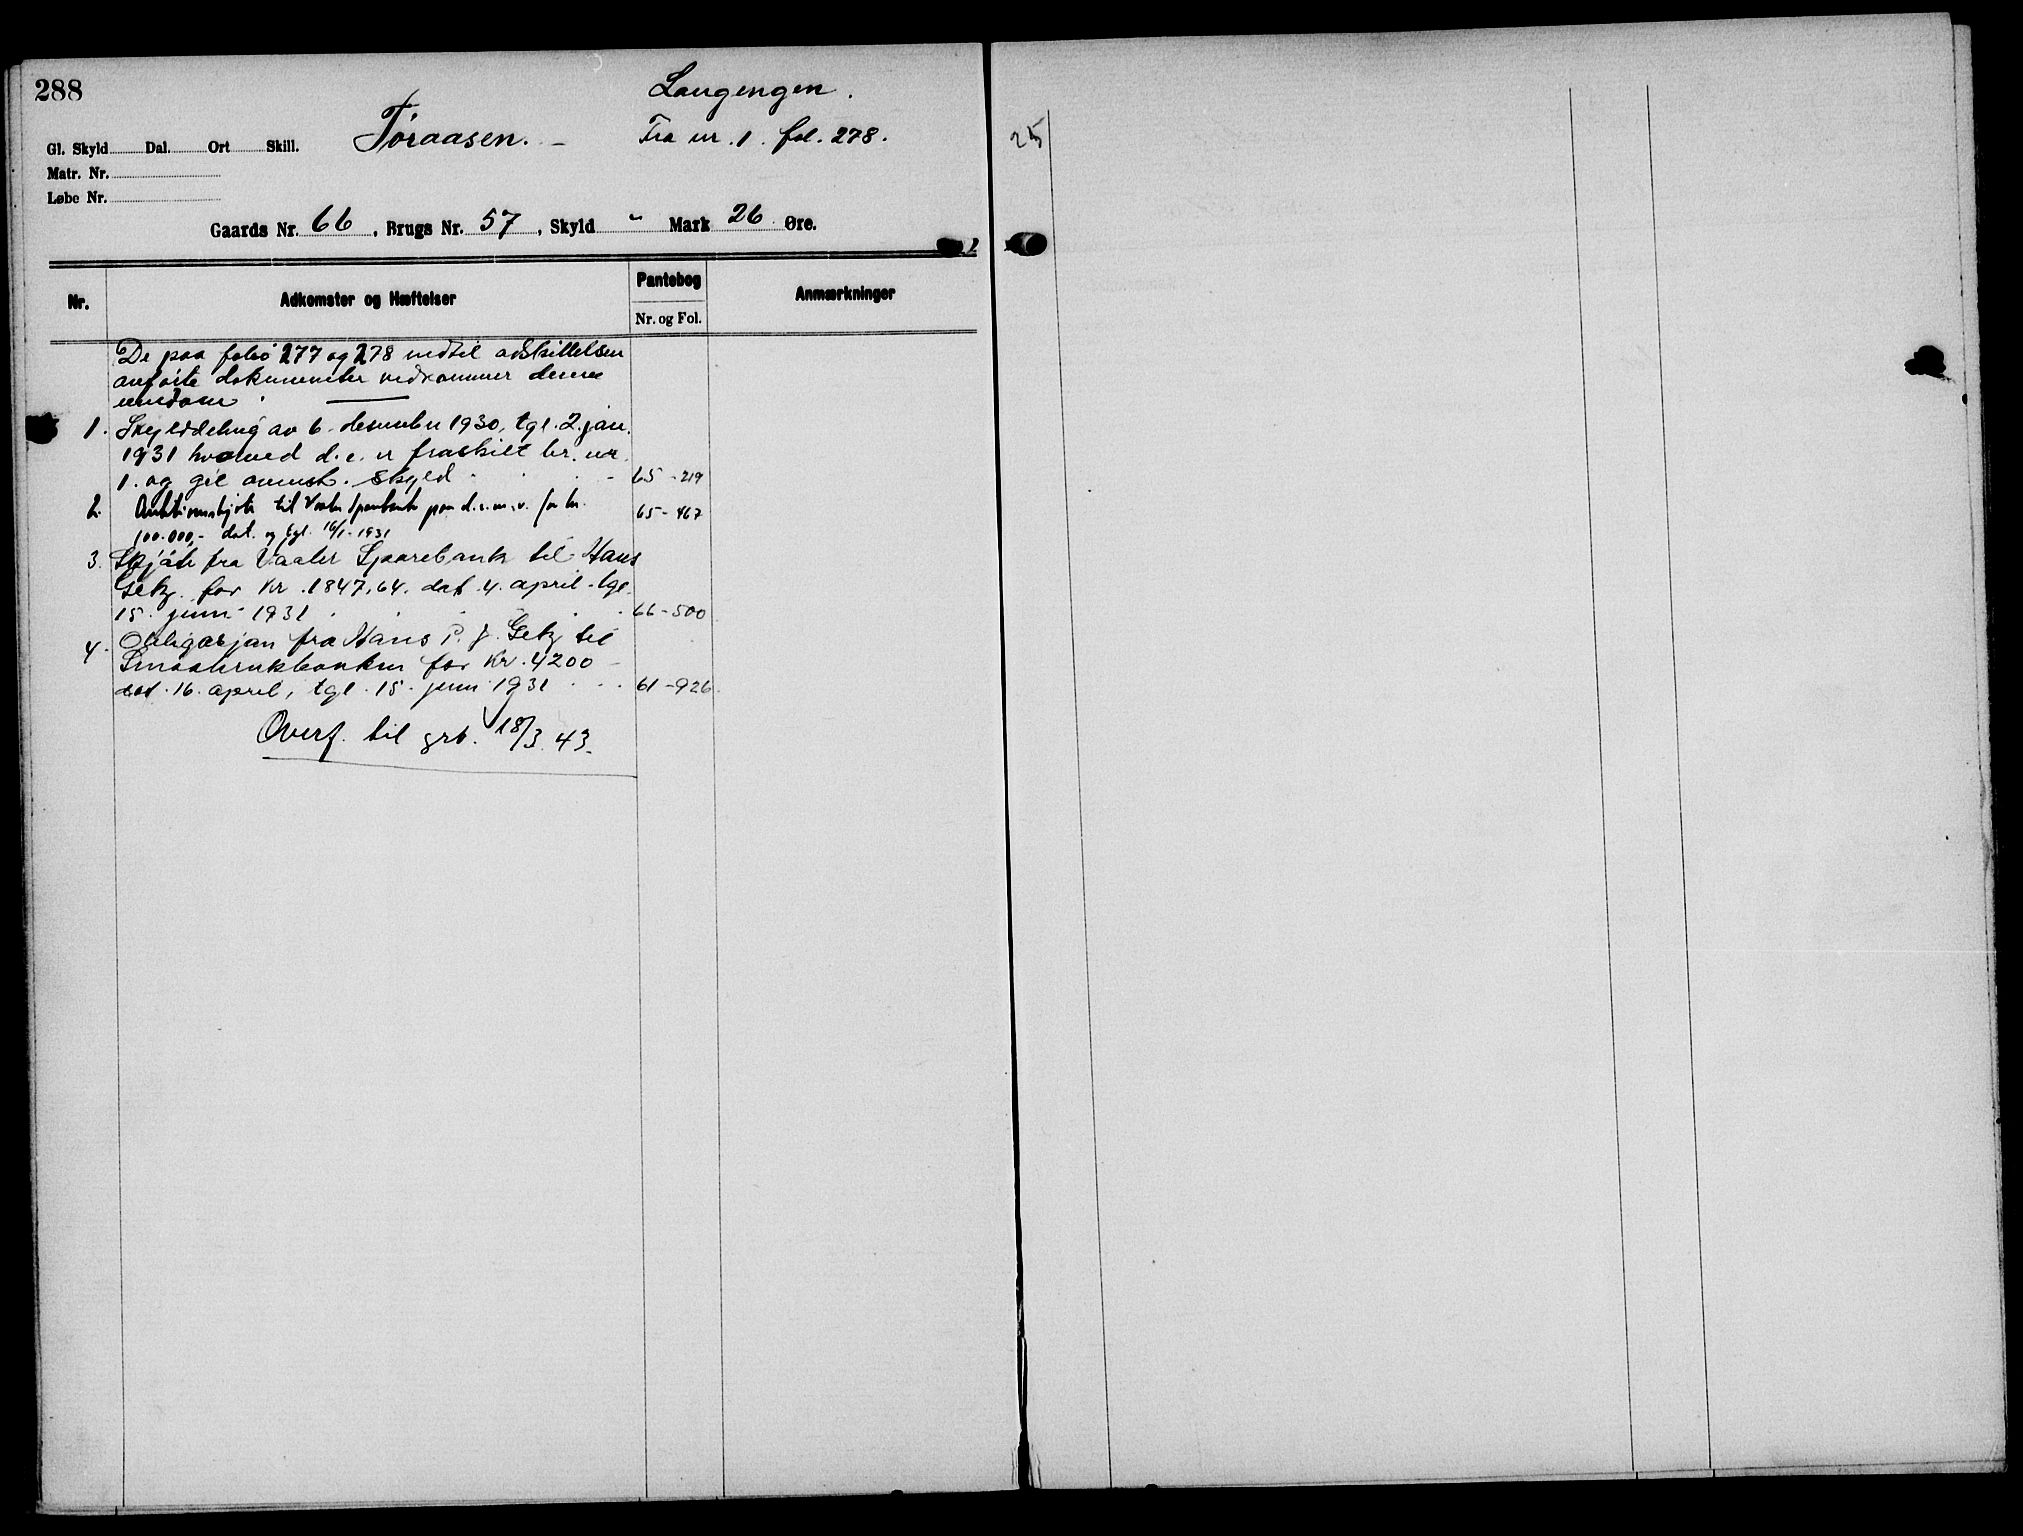 288
Langengen.
Tøraasen. — Fra nr. 1. fol. 278.
Gl. Skyld Dal. Ort Skill.
Matr. Nr.
Løbe Nr.
Gaards Nr. 66, Brugs Nr. 57, Skyld " Mark 26 Øre.
Nr. Adkomster og Hæftelser Pantebog Anmærkninger
Nr. og Fol.
De paa folio 277 og 278 indtil adskillelsen
anførte dokumenter vedkommer denne
eiendom.
1. Skylddeling av 6. desember 1930, tgl. 2. jan.
1931 hvorved d. e. er fraskilt br. nr.
1. og git ovenst. skyld 65-219
2. Auktionsskjøte til Vaaler Sparebank paa d. e. m. v. for kr. 65-467
100.000,- dat. og tgl. 16/1-1931
3. Skjøte fra Vaaler Sparebank til Hans
for kr. 1847,64. dat. 4. april. tgl.
15. juni 1931 66-500
4. Obligasjon fra Hans P. J. til
Smaabrukbanken for kr. 4200 -
dat. 16. april, tgl. 15. juni 1931 61-926
Overf. til grb. 18/3. 43.
25